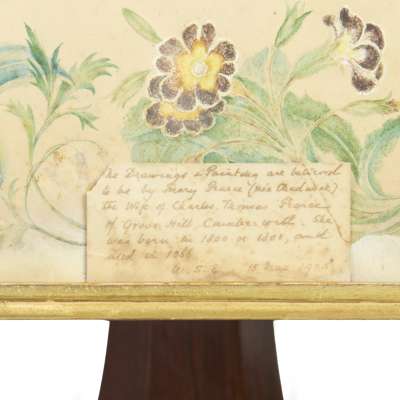 The Drawings & Painting are believed
to be by Mary Pearce (née Chadwick)
the Wife of Charles Thomas Pearce
of Grove Hill, Camberwell. She
was born in 1800 or 1801, and
died in 1866
15 June